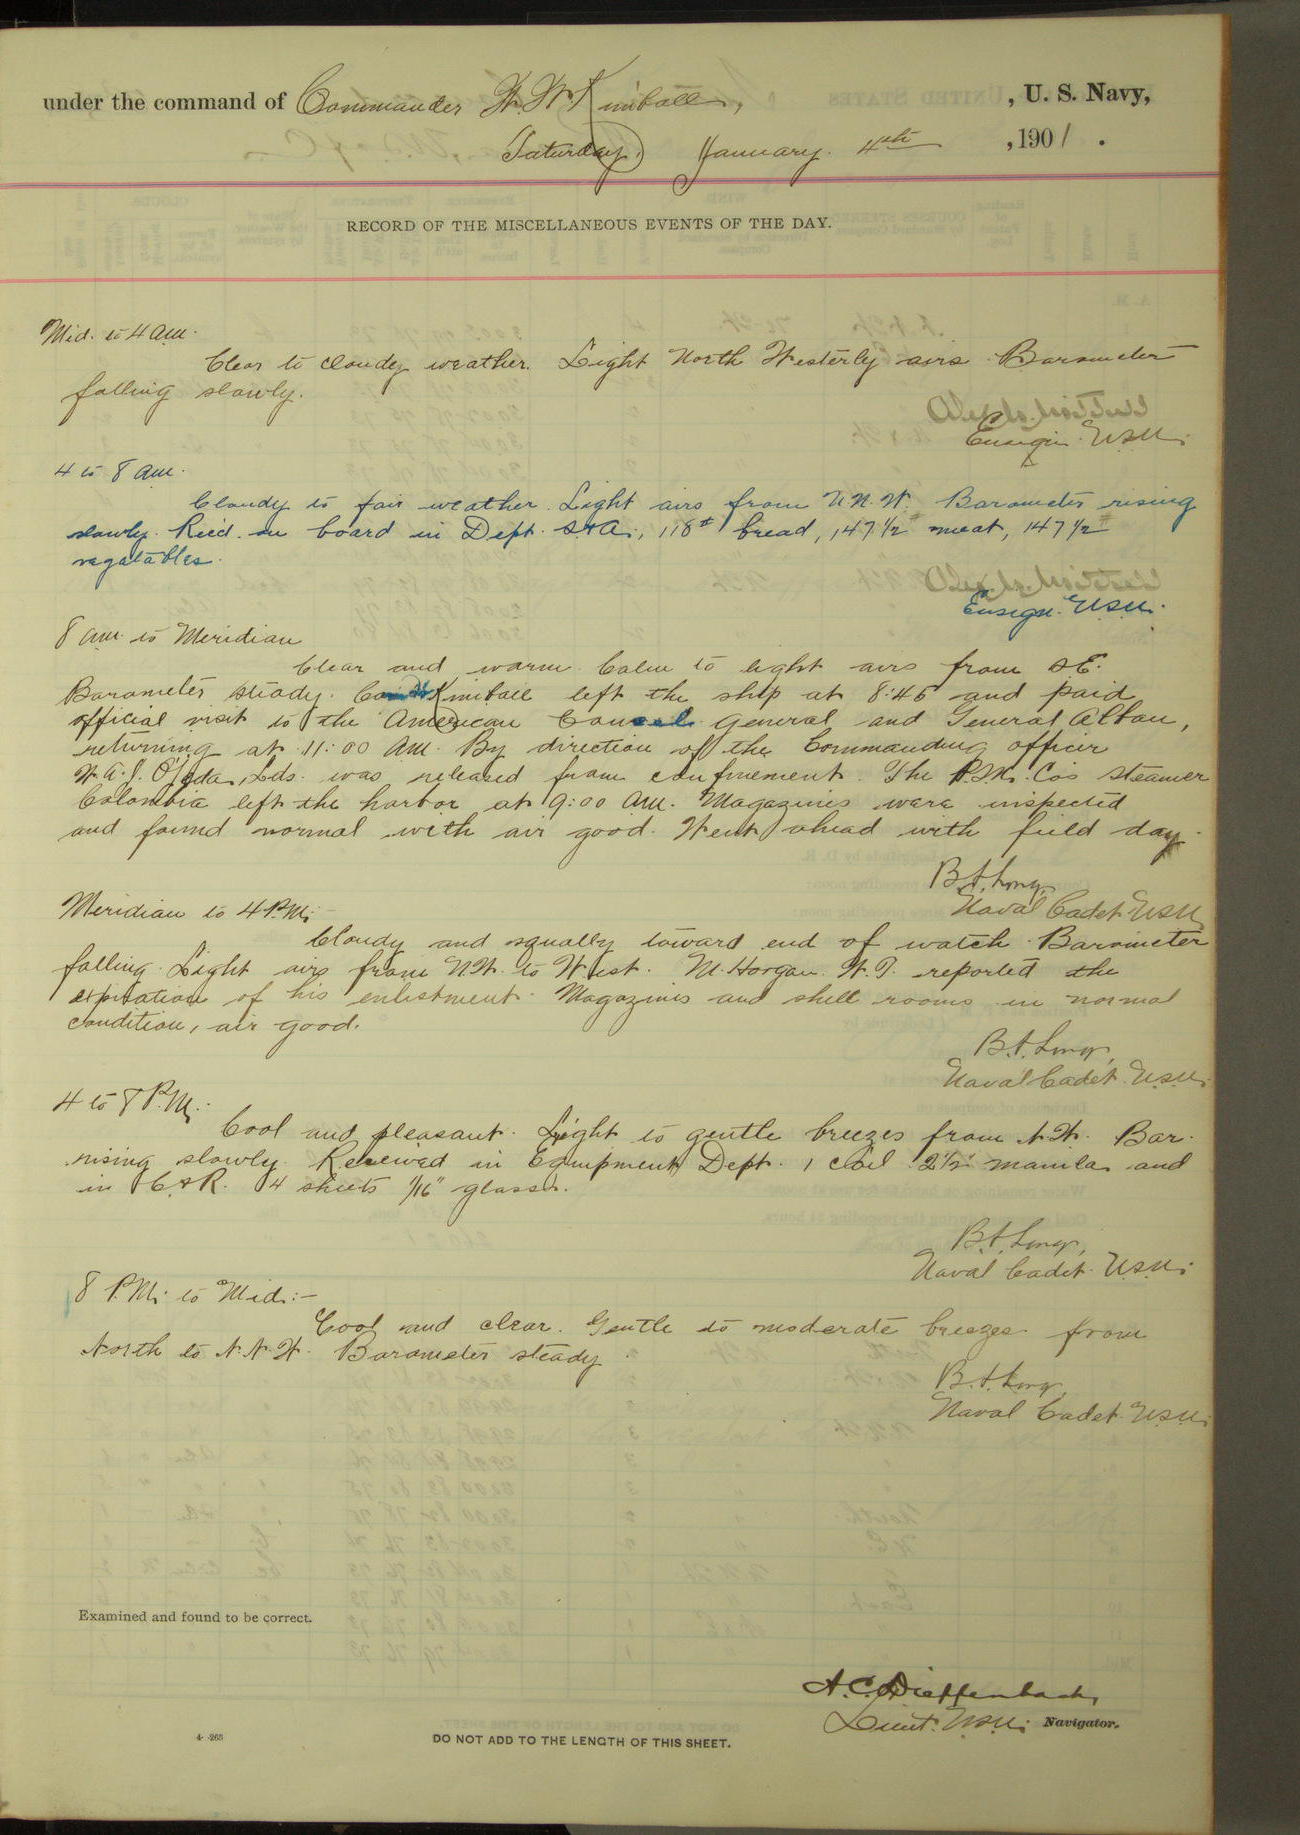 under the command of Commander W. W. Kimball, , U. S. Navy,
Saturday, January 4th , 1901 .
RECORD OF THE MISCELLANEOUS EVENTS OF THE DAY.
Mid. to 4 am.
Clear to cloudy weather. Light North Westerly airs. Barometer
falling slowly.
Ensign U.S.N.
4 to 8 am.
Cloudy to fair weather. Light airs from N.N.W. Barometer rising
slowly. Recd. on board in Dept. S&A., 118# bread, 147 1/2 meat, 147 1/2
vegatables.
Ensign. U.S.N.
8 am. to Meridian
Clear and warm. Calm to light airs from SE.
Barometer steady. Kimball left the ship at 8:45 and paid
official visit to the American Consul General and General Alban,
returning at 11:00 AM. By direction of the Commanding officer
W. A. J. O'Joda, Lds. was released from confinement. The P.M. Co's steamer
Colombia left the harbor at 9:00 AM. Magazines were inspected
and found normal with air good. Went ahead with field day.
B. A. Long,
Naval Cadet U.S.N.
Meridian to 4 P.M.:-
Cloudy and squally toward end of watch. Barometer
falling. Light airs from N.W. to West. M. Horgan. W.T. reported the
expiration of his enlistment. Magazines and shell rooms in normal
condition, air good.
B. A. Long,
Naval Cadet. U.S.N.
4 to 8 P.M.:-
Cool and pleasant. Light to gentle breezes from N.W. Bar.
rising slowly. Received in Equipment Dept. 1 coil 2 1/2" manila and
in C&R. 4 sheets 1/16" glass.
B. A. Long,
Naval Cadet. U.S.N.
8 P.M. to Mid.:-
Cool and clear. Gentle to moderate breezes from
North to N.N.W. Barometer steady.
B. A. Long,
Naval Cadet. U.S.N.
Examined and found to be correct.
A. C. Dieffenbach,
Lieut. U.S.N. Navigator.
4-263
DO NOT ADD TO THE LENGTH OF THIS SHEET.